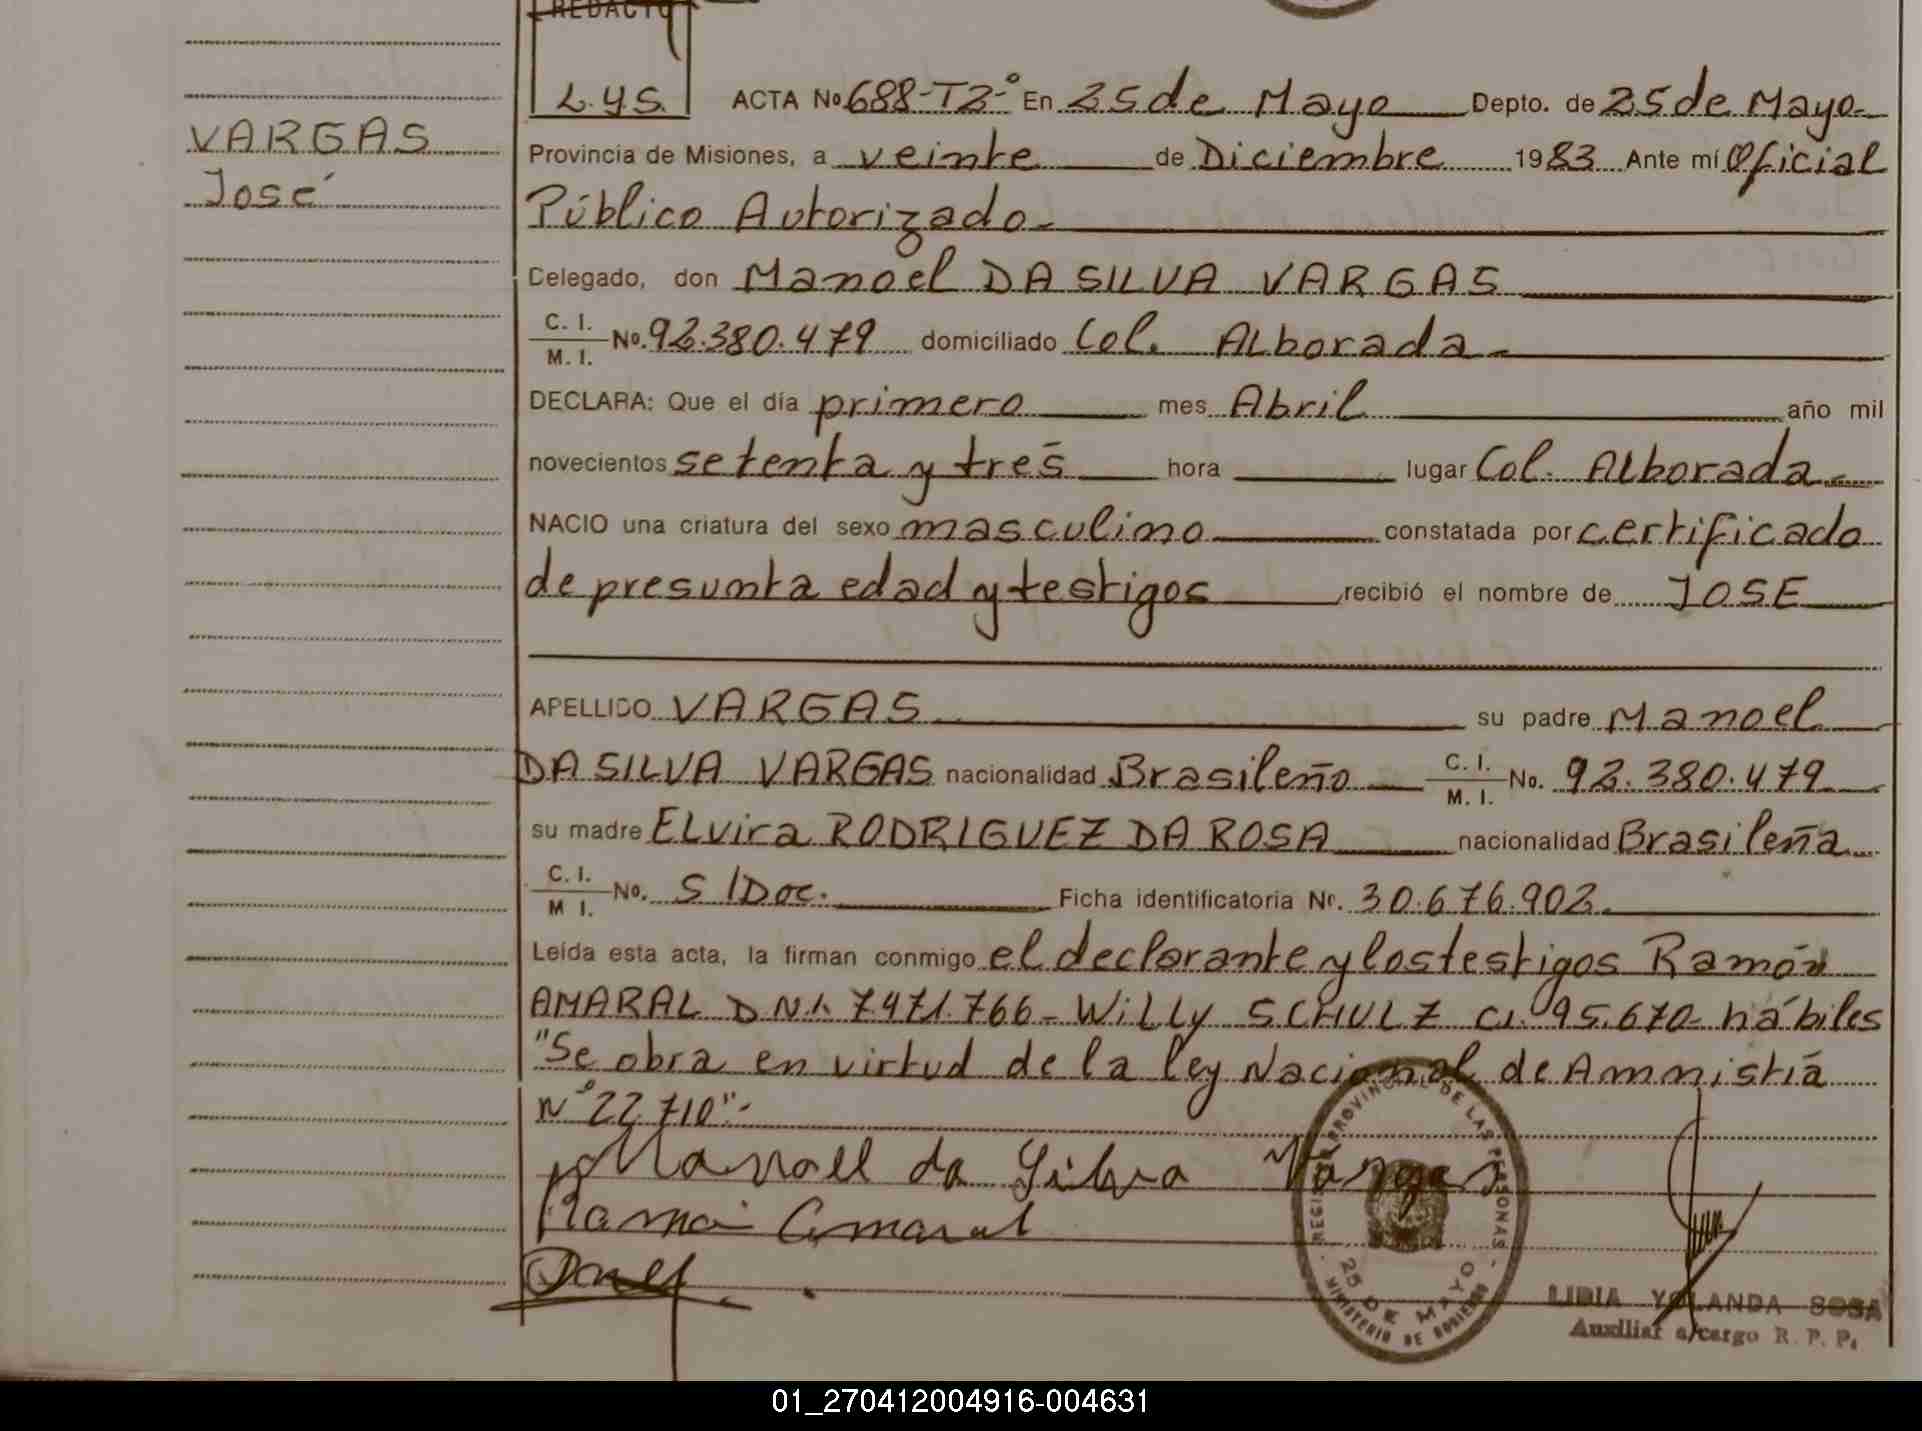 REDACTO
L.y.S.
VARGAS
José
ACTA No 688-T2-° En 25 de Mayo Depto. de 25 de Mayo-
Provincia de Misiones, a veinte de Diciembre 1983 Ante mí Oficial
Público Autorizado-
Delegado, don Manoel DA SILVA VARGAS
C. I. / M. I. No. 92.380.479 domiciliado Col. Alborada-
DECLARA: Que el día primero mes Abril año mil
novecientos setenta y tres hora lugar Col. Alborada-
NACIO una criatura del sexo masculino constatada por certificado
de presunta edad y testigos recibió el nombre de JOSE
APELLIDO VARGAS su padre Manoel
DA SILVA VARGAS nacionalidad Brasileño C. I. / M. I. No. 92.380.479
su madre ELvira RODRIGUEZ DA ROSA nacionalidad Brasileña
C. I. / M I. No. S/Doc. Ficha identificatoria Nº. 30.676.902.
Leída esta acta, la firman conmigo el declarante y los testigos Ramón
AMARAL D.N.I. 7.471.766- Willy SCHULZ CI. 95.670- hábiles
"Se obra en virtud de la ley Nacional de Amnistía
N° 22.710"-
Manoell da Silva Vargas
Ramon Amaral
REGISTRO PROVINCIAL DE LAS PERSONAS
25 DE MAYO
MINISTERIO DE GOBIERNO
LIDIA YOLANDA SOSA
Auxiliar a/cargo R. P. P.
01_270412004916-004631